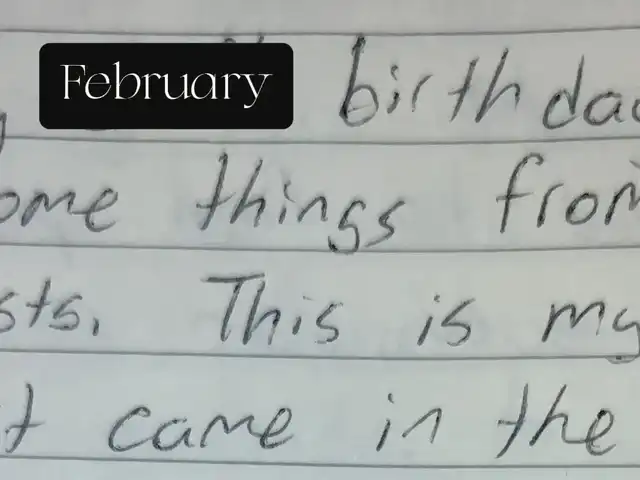 February
birthda
ome things from
sts. This is my
t came in the